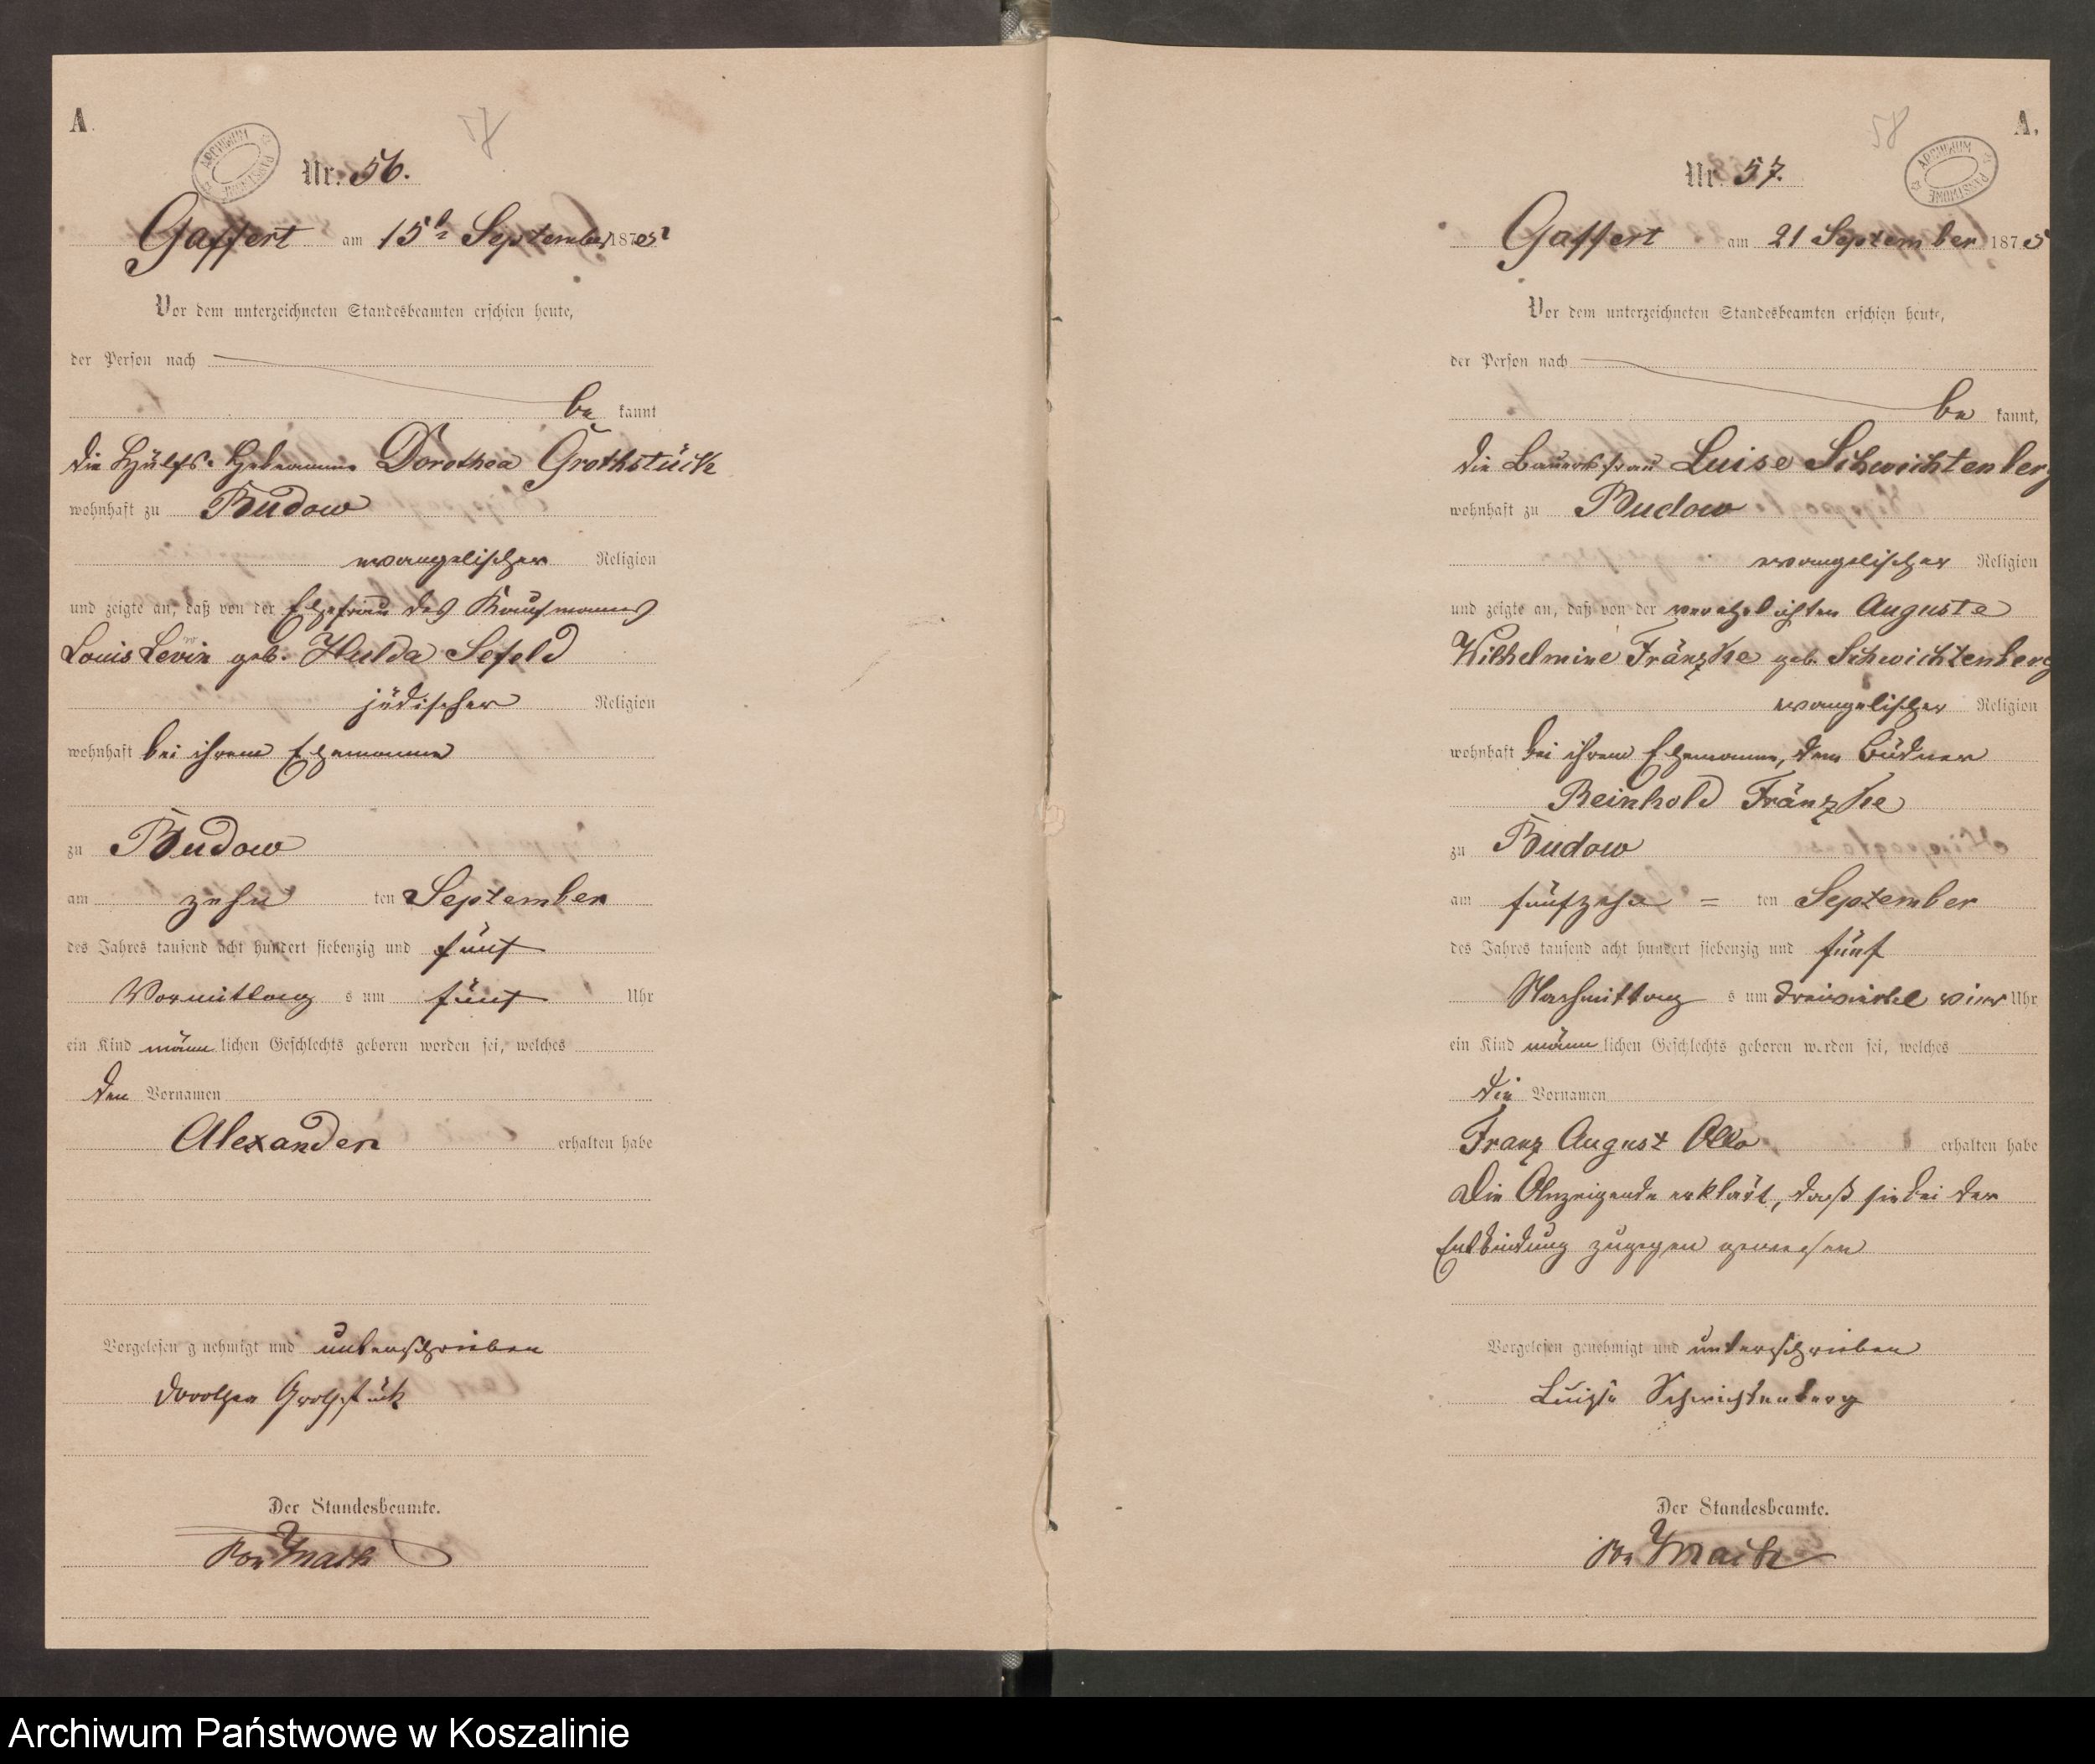 A.
ARCHIWUM PAŃSTWOWE
57
Nr. 56.
Gaffert am 15t. September 1875
Vor dem unterzeichneten Standesbeamten erschien heute,
der Person nach
be kannt
die Hülfs-Hebeamme Dorothea Grothstück
wohnhaft zu Budow
evangelischer Religion
und zeigte an, daß von der Ehefrau des Kaufmanns
Louis Levin geb. Hulda Sefeld
jüdischer Religion
wohnhaft bei ihrem Ehemanne
zu Budow
am zehn ten September
des Jahres tausend acht hundert siebenzig und fünf
Vormittag s um fünf Uhr
ein Kind männ lichen Geschlechts geboren worden sei, welches
den Vornamen
Alexander erhalten habe
Vorgelesen genehmigt und unterschrieben
Dorothea Grothstück
Der Standesbeamte.
von
A.
58
ARCHIWUM PAŃSTWOWE
Nr. 57.
Gaffert am 21 September 1875
Vor dem unterzeichneten Standesbeamten erschien heute,
der Person nach
be kannt,
die Bauersfrau Luise Schwichtenberg
wohnhaft zu Budow
evangelischer Religion
und zeigte an, daß von der verehelichten Auguste
Wilhelmine Fränzke geb. Schwichtenberg
evangelischer Religion
wohnhaft bei ihrem Ehemanne, dem Büdner
Reinhold Fränzke
zu Budow
am fünfzehn = ten September
des Jahres tausend acht hundert siebenzig und fünf
Nachmittag s um dreiviertel vier Uhr
ein Kind männ lichen Geschlechts geboren worden sei, welches
die Vornamen
Franz August Otto erhalten habe
Die Anzeigende erklärt, daß sie bei der
Entbindung zugegen gewesen
Vorgelesen genehmigt und unterschrieben
Luise Schwichtenberg
Der Standesbeamte.
von
Archiwum Państwowe w Koszalinie